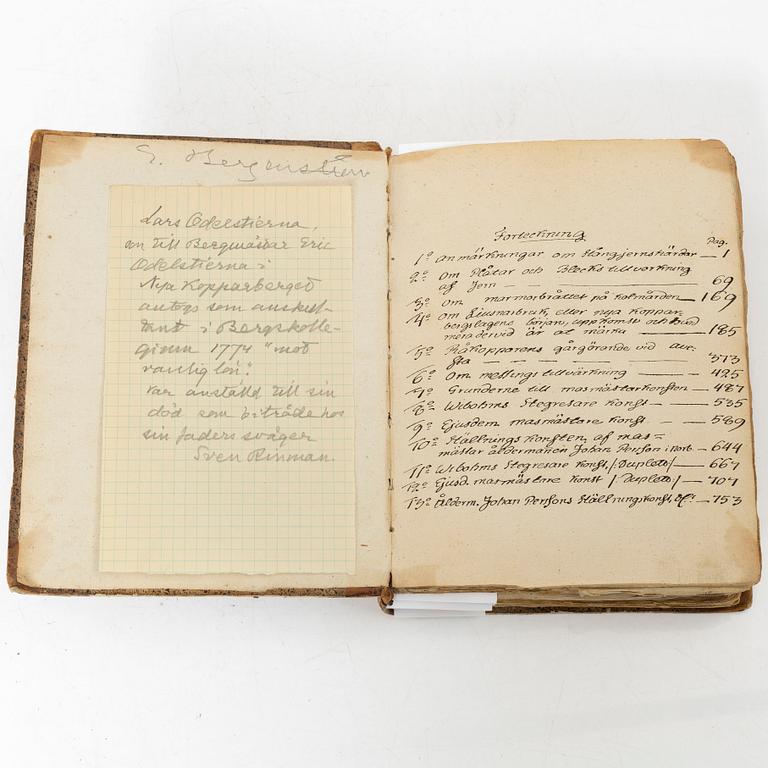 Lars Odelstierna,
son till Bergmästar Eric
Odelstierna i
Nya Kopparberget
antogs som auskul-
tant i Bergskolle-
gium 1774 "mot
vanlig lön".
var anställd till sin
död som biträde hos
sin faders svåger
Sven Rinman.
Forteckning
Pag.
1º anmärkningar om stångjernshärdar — 1
2º Om Plåtar och Blecks tillvärkning
af Jern — — — 69
3º Om marmorbråttet på kolmården — 169
4º Om Liusnarbruk, eller nya koppar-
bergslagens början, uppkomst och hvad
meradervid är at märka — 185
5º Råkopparens gårgörande vid ave-
sta — — — — — 373
6º Om messings tillvärkning — — 425
7º Grunderne till masmästarkonsten — 487
8º Wibolms Stegresare Konst — — 535
9º Ejusdem masmästare Konst — — 589
10º Hällnings Konsten, af mas-
mästar åldermannen Johan Persson i Norb. — 644
11º Wibolms Stegresare Konst, /: Dupleto :/ — 667
12º Ejusd. masmästare Konst /: Dupleto :/ — 707
13º Ålderm. Johan Perssons Hällnungskonst — 753